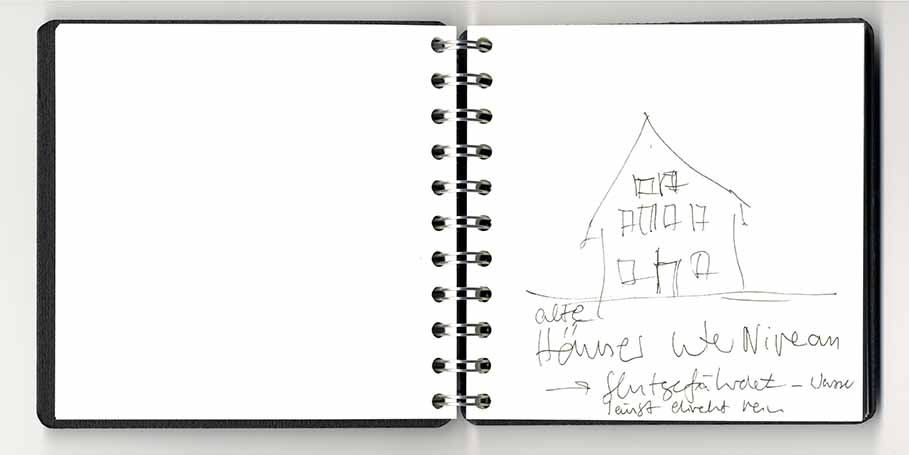 alte
Häuser Niveau
→ flutgefährdet – Wasser
läuft direkt rein